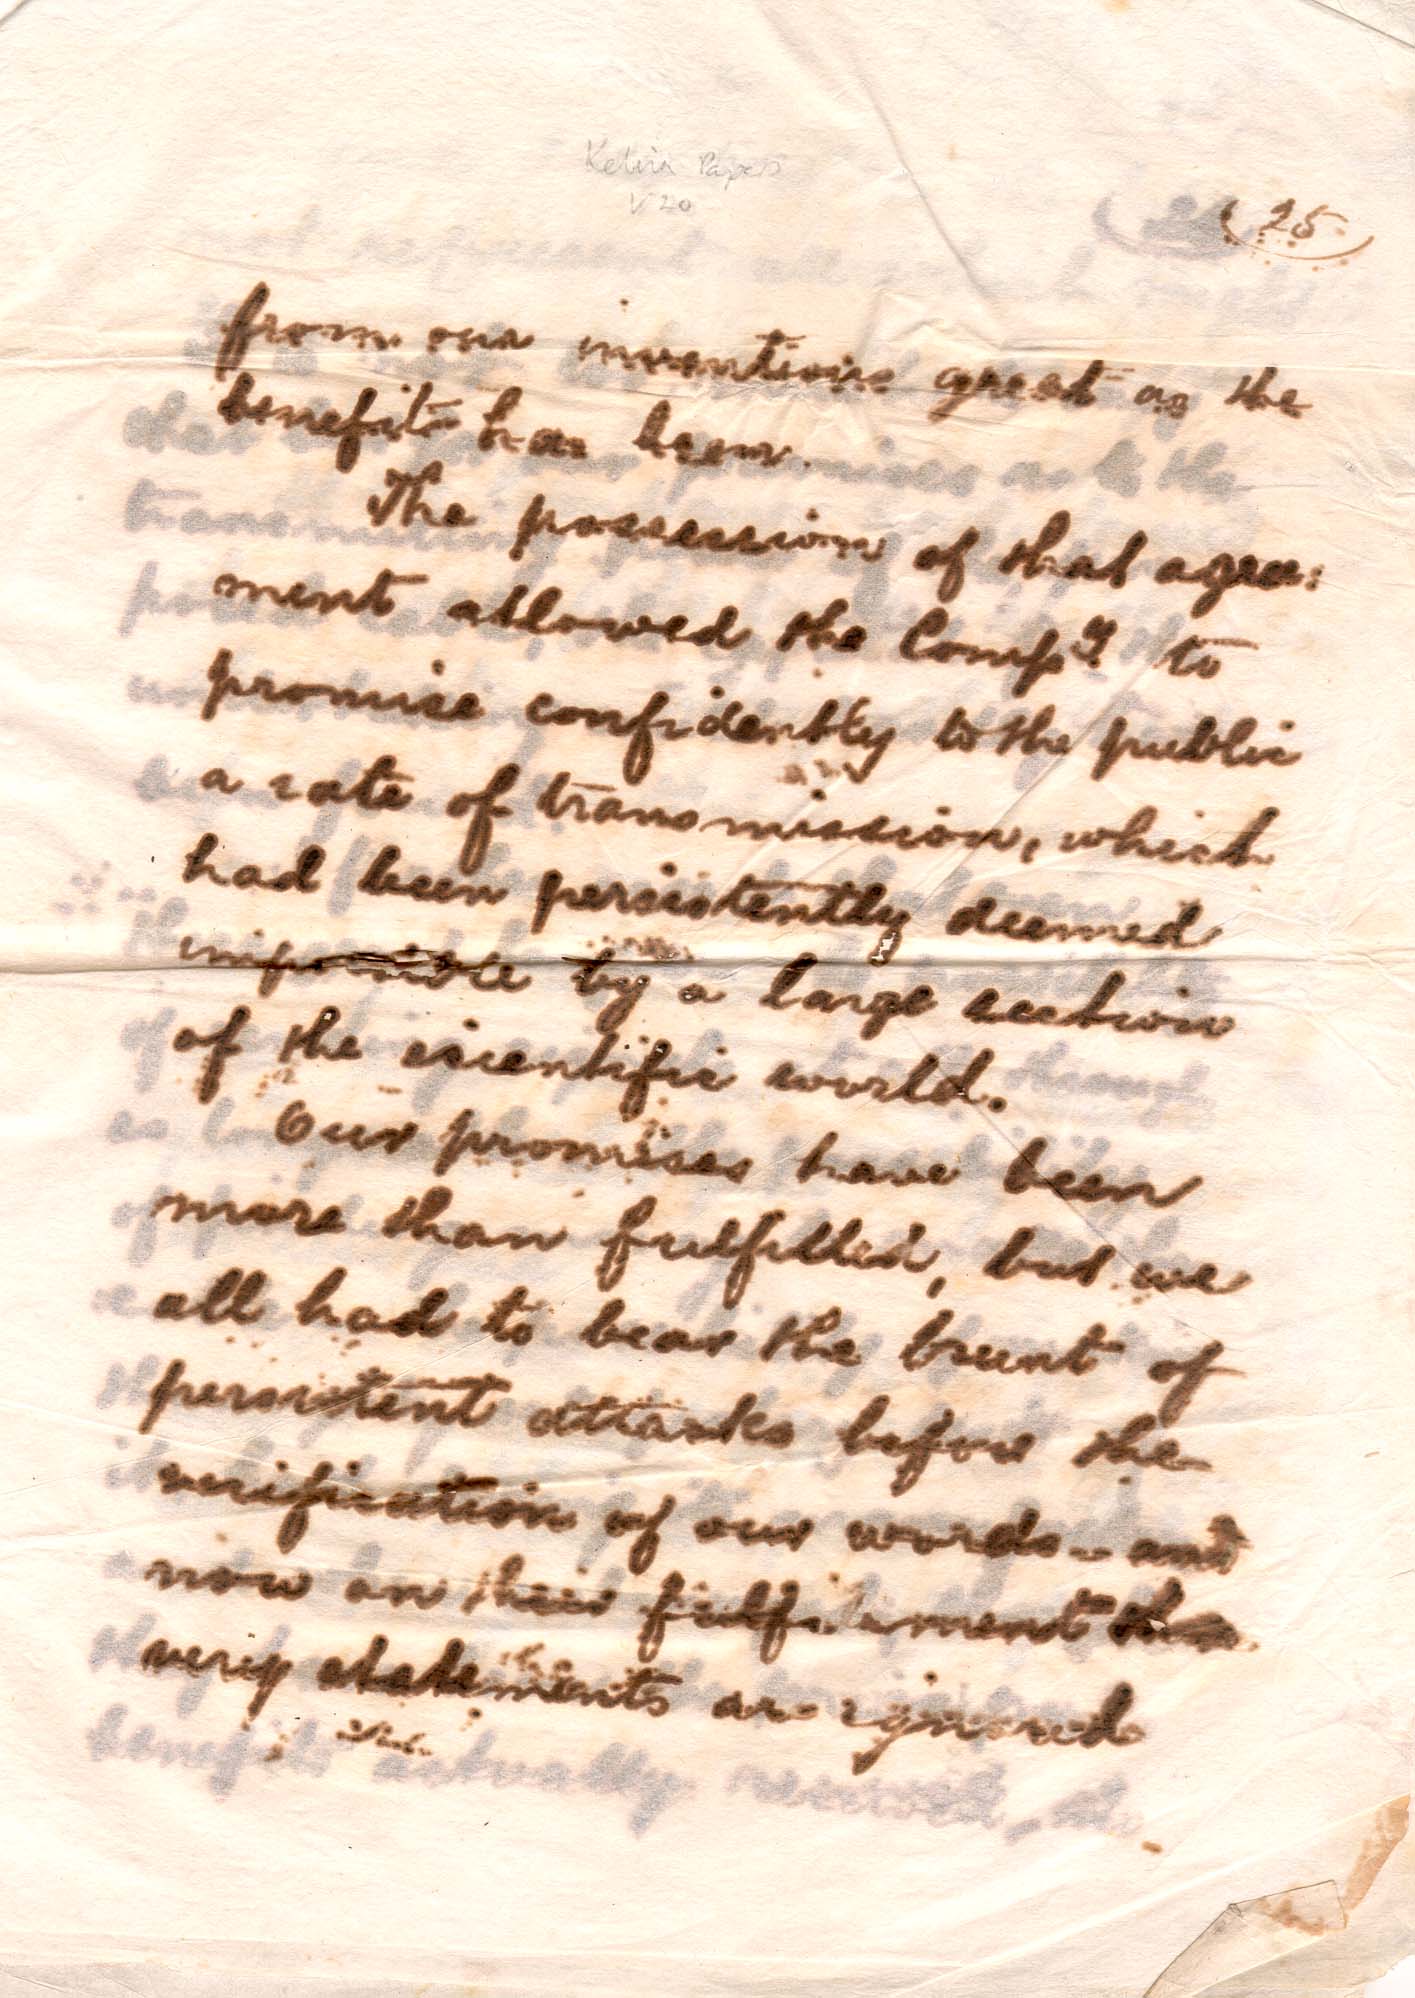 Kelvin Papers
V 20
25
from our inventions great as the
benefit has been.
The possession of that agree:
ment allowed the Compy to
promise confidently to the public
a rate of transmission, which
had been persistently deemed
impossible by a large section
of the scientific world.
Our promises have been
more than fulfilled, but we
all had to bear the brunt of
persistent attacks before the
verification of our words – and
now on their fulfilment
very statements are ignored